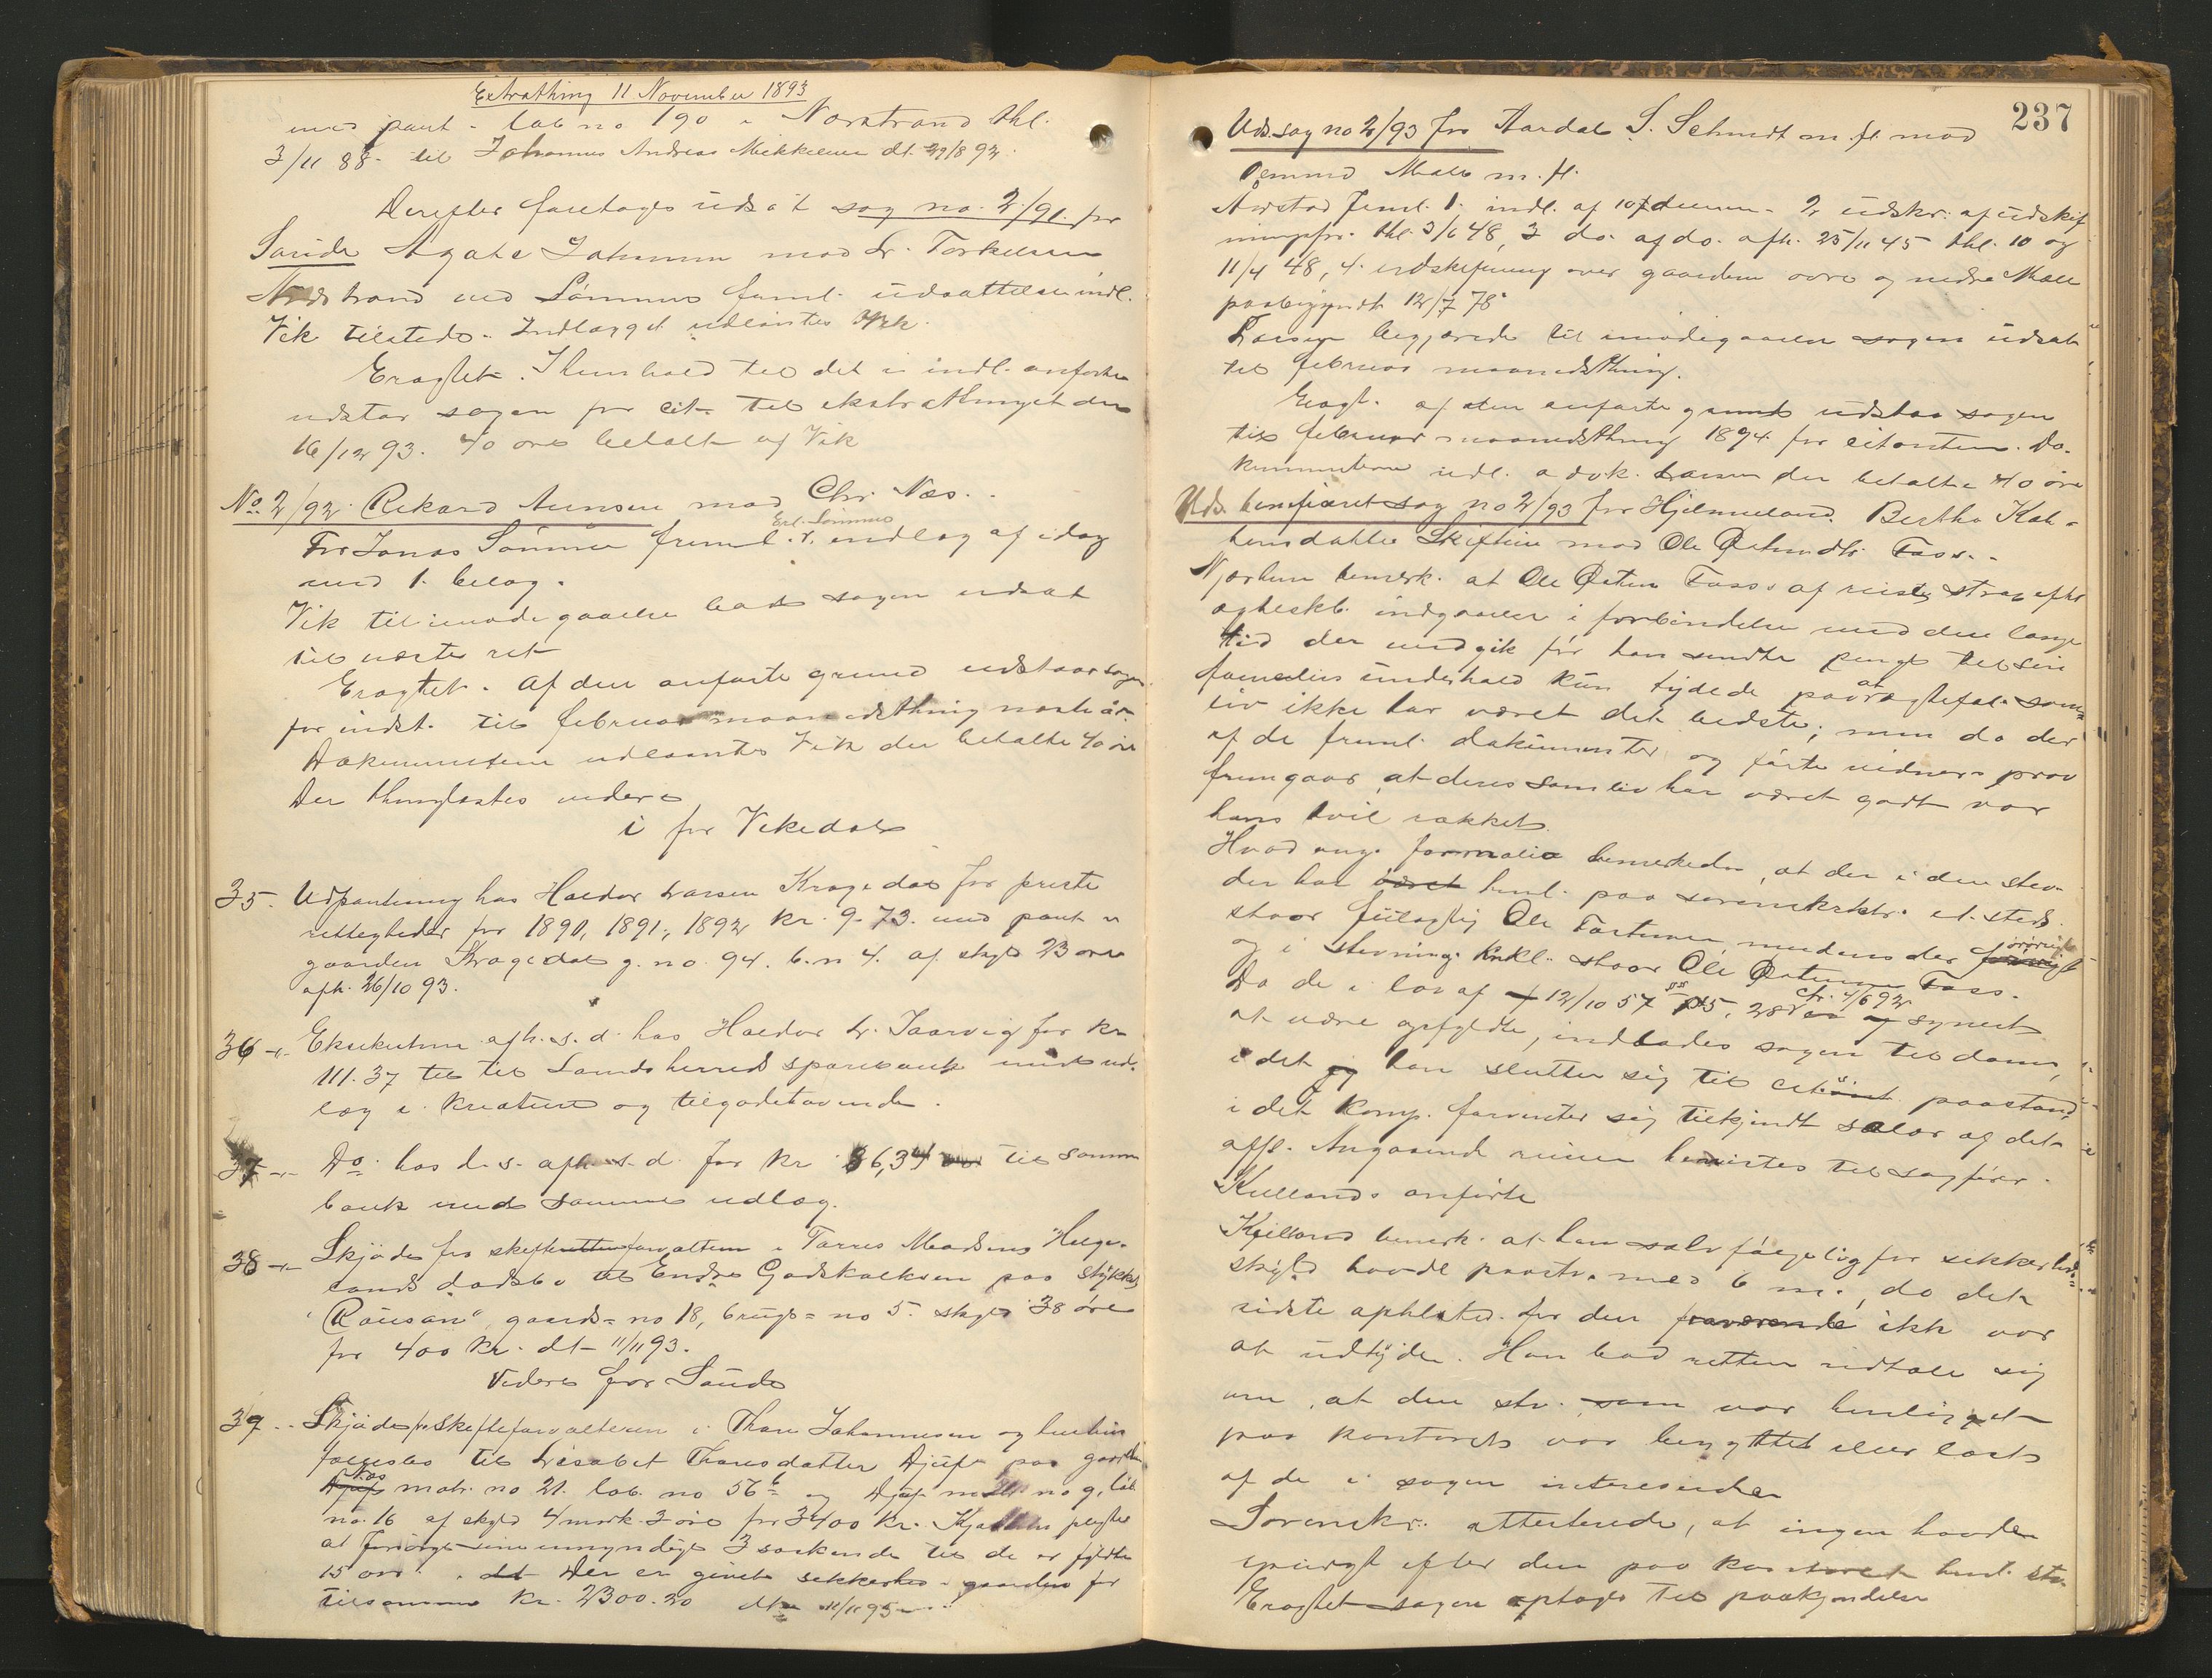 Extrathing 11 November 1893
med pant i lab no 190 i Norstrand thl.
3/11 88. til Johannes Andreas Mikkelsen dt. 29/8 92.
Derefter foretages udsat sag no. 2/91. for
Saude Agate Johannesen mod L. Torkelsen
Nedstrand ved Sömme feml. udsættelse indl.
Vik tilstede. Indlægget udlaantes Vik.
Eragtet. I henhold til det i indl. anförte
udstaar sagen for cit. til ekstrathinget den
16/12 93. 40 öre betalt af Vik
No. 2/92. Rekard Aunsen mod Chr. Næs.
Erl. Sömmes
For Jonas Sömme freml. r. indlæg af idag
med 1. bilag.
Vik til imödegaaelse bad sagen udsat
til næste ret
Eragtet. Af den anförte grund udstaar sagen
for indst. til februar maanedsthing næste år.
Dokumenterne udlaantes Vik der betalte 40 öre
Der thinglæstes videre
i for Vikedal
35. Udpantning hos Haldor Larsen Kragedal for preste
rettigheder for 1890, 1891, 1892 kr. 9.73. med pant i
gaarden Kragedal g. no. 94. b. n 4. af skyld 23 öre
afh. 26/10 93.
36 -"- Eksekution afh. s. d. hos Haldor L. Jaarvig for kr
111.37 til Landsherred sparebank med ud-
læg i kreature og tilgodehavende.
37 -"- Do. hos d. s. afh. s. d. for kr 36,34 til samme
bank med samme udlæg.
38 -"- Skjöde fra skifteforvalteren i Torres Madsens Helge-
lands dödsbo til Endre Godskalksen paa stykket
"Rousan" gaards-no 18, brugs-no 5. skyld 38 öre
for 400 kr. dt 11/11 93.
Videre for Saude
39 .. Skjöde fr skifteforvalteren i Thore Johannesen og hustrus
fællesbo til Lisabet Thoresdatter Djup paa gaarden
Næs
Djup matr. no 21. lab. no 56b og Djup matr no 9, lab
no. 16 af skyld 4 mark 2 öre for 3400 kr.
at forsörge sine umyndige 3 söskende til de er fyldte
15 aar. Der er givet sikkerhed i gaarden for
tilsammen kr. 2300.20 dt 11/11 93
237
Uds. sag no 2/93 for Aardal S. Schmidt m. fl. mod
Osmund Mæle m. fl.
Aarstad freml. 1. indl. af 10/ dennem. 2 udskr. af udskift
ningsfor. thl. 3/6 48, 3 do. af do. afh. 25/11 45 thl. 10 og
11/4 48, 4. udskiftning over gaarden övre og nedre Mæle
paabegyndt 12/7 78.
Larsen begjærede til imödegaaelse sagen udsat
til februar maanedsthing.
Eragt. af den anförte grund udstaar sagen
til februar maanedsthing 1894 for citanten. Do-
kumenterne udl. adv. Larsen der betalte 40 öre
Uds. beneficeret sag no 2/93 for Hjelmeland. Bertha Kat-
hensdatter Skiftun mod Ole Östensen Foss.
Njærheim bemerk. at Ole Östens Foss's afreise strax efter
ægteskb. indgaaelse i forbindelse med den lange
tid der medgik för han sendte penge til sin
families underhold kun tydede paa at ægtefæl. sam-
liv ikke har været det bedste; men da der
af de freml. dokumenter og förte vidners prov
fremgaar at deres samliv har været godt var
hans tvil rækket.
Hvad ang. formalia bemerkedes, at der i den stev.
der har været henl. paa sorenskrktr. et. steds.
staar feilagtig Ole Torstensen medens der forövrigt
og i stevnings inkl. staar Ole Östensen Foss.
Da de i lov af 12/10 57 §§ 15, 28 cfr. 4/6 92 synest
at være opfyldte, indlades sagen til doms,
idet han slutter sig til cit.s paastand
idet komp. forventer sig tilkjendt salær og det
affl. Angaaende reisen henvistes til sagförer
Kiellands anförte
Kielland bemerk. at han selvfölgelig for sikkerheds-
skyld havde paastv. med 6 m., da det
sidste opholdsted for den fraværende ikke var
at udtyde. Han bad retten udtale sig
om, at den stv. som var henligget
paa kontoret var benyttet eller læst
af de i sagen interesserede
Sorenskr. attesterede, at ingen havde
spurgt efter den paa kontoret henl. stv.
Eragtet sagen optages til paakjendelse